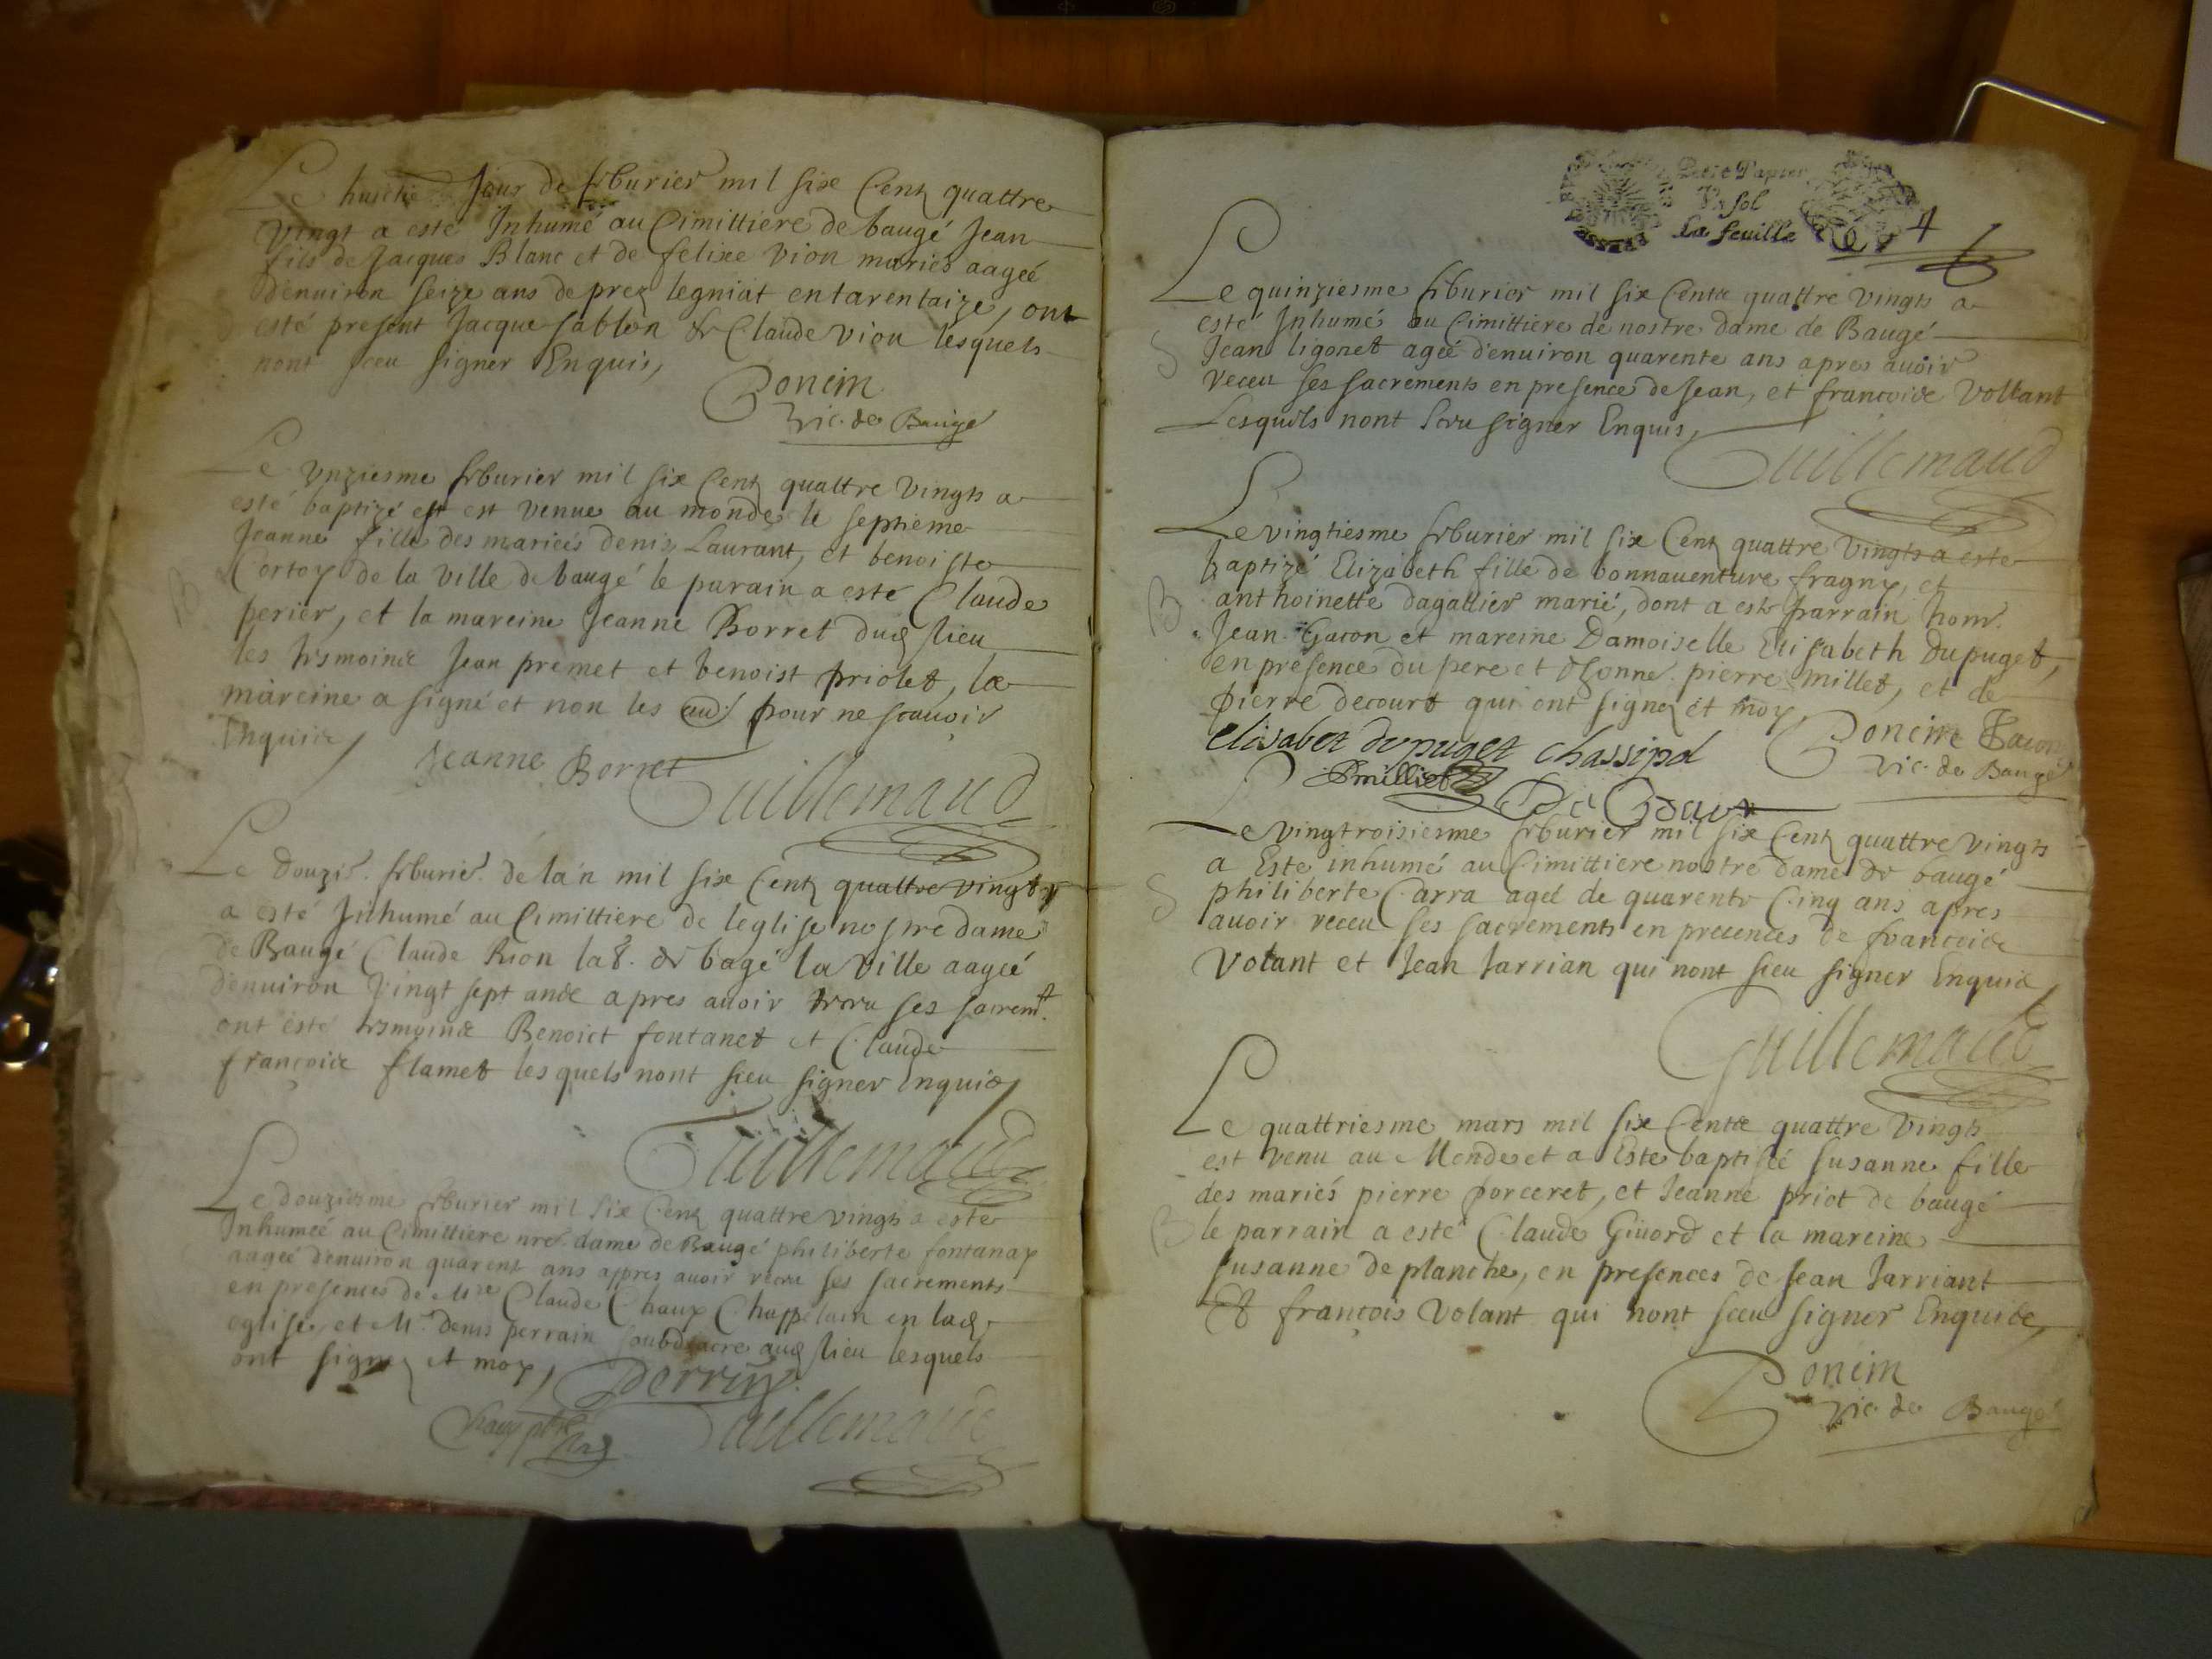 Le huictie Jour de feburier mil six Cent quattre
Vingt a esté Inhumé au Cimittiere de baugé Jean
fils de Jacques Blanc et de felixe vion mariés aageé
denuiron seize ans de prez legniat en tarentaize, ont
esté present Jacque sablon & Claude viou lesquels
nont sceu signer Enquis,
Poncin
vic. de Baugé
Le vnziesme feburier mil six Cent quattre vingts a
esté baptizé et est venue au monde le septieme
Jeanne fille des mariés denis Laurant, et benoiste
Cortoy de la ville de baugé le parain a esté Claude
perier, et la mareine Jeanne Borret dud lieu
les tesmoins Jean premet et benoist priolet, la
màreine a signé et non les aud pour ne scauoir
Enquis
Jeanne Borret
Guillemaud
Le Douzie. feburie. de lan mil six Cent quattre vingt
a esté Inhumé au Cimittiere de leglise nostre dame
de Baugé Claude Rion lab. de bagé la ville aageé
denuiron vingt sept ans apres auoir receu ses sacremt.
ont esté tesmoins Benoict fontanet et Claude
françois flamet lesquels nont sceu signer Enquis
Guillemaud
Le douziesme feburier mil six Cent quattre vingts a esté
Inhumeé au Cimittiere nre. dame de Baugé philiberte fontanay
aageé denuiron quarent ans appres auoir receu ses sacrements
en presences de Mre Claude Chaux Chappelain en lad.
eglise, et Mr. denis perrain soubdiacre aud lieu lesquels
ont signez et moy,
Perrin
Chaux ptre
Guillemaud
Petit Papier
Vn sol
La feuille
4
Le quinziesme feburier mil six Cents quattre vingts a
esté Inhumé au Cimittiere de nostre dame de Baugé
S
Jean ligonet ageé denuiron quarente ans apres auoir
receu ses sacrements en presence de Jean, et francois Vollant
Lesquels nont sceu signer Enquis,
Guillemaud
Le vingtiesme feburier mil six Cent quattre vingts a esté
baptizé Elizabeth fille de bonnauenture fragny, et
B
anthoinette dagallier marié, dont a esté parrain honr.
Jean Gacon et mareine Damoiselle Elisabeth Dupuget,
en présence du pere et dhonne. pierre millet, et de
pierre decourt qui ont signez et moy,
Poncin Gacon
vic. de Baugé
elisabet dupuget chassipol
Pmilliet
Le vingtroisiesme feburier mil six Cent quattre vingts
a Este inhumé au Cimittiere nostre dame de baugé
S
philiberte Carra ageé de quarente Cinq ans apres
auoir receu ses sacrements en precences de francois
Volant et Jean Jarrian qui nont sceu signer Enquis
Guillemaud
Le quattriesme mars mil six Cents quattre vingts
est venu au Monde et a Este baptiseé susanne fille
des mariés pierre porceret, et Jeanne priot de baugé
B
le parrain a esté Claude Giuord et la mareine
susanne de planche, en presences de Jean Jarriant
Et françois Volant qui nont sceu signer Enquits,
Poncin
vic. de Baugé